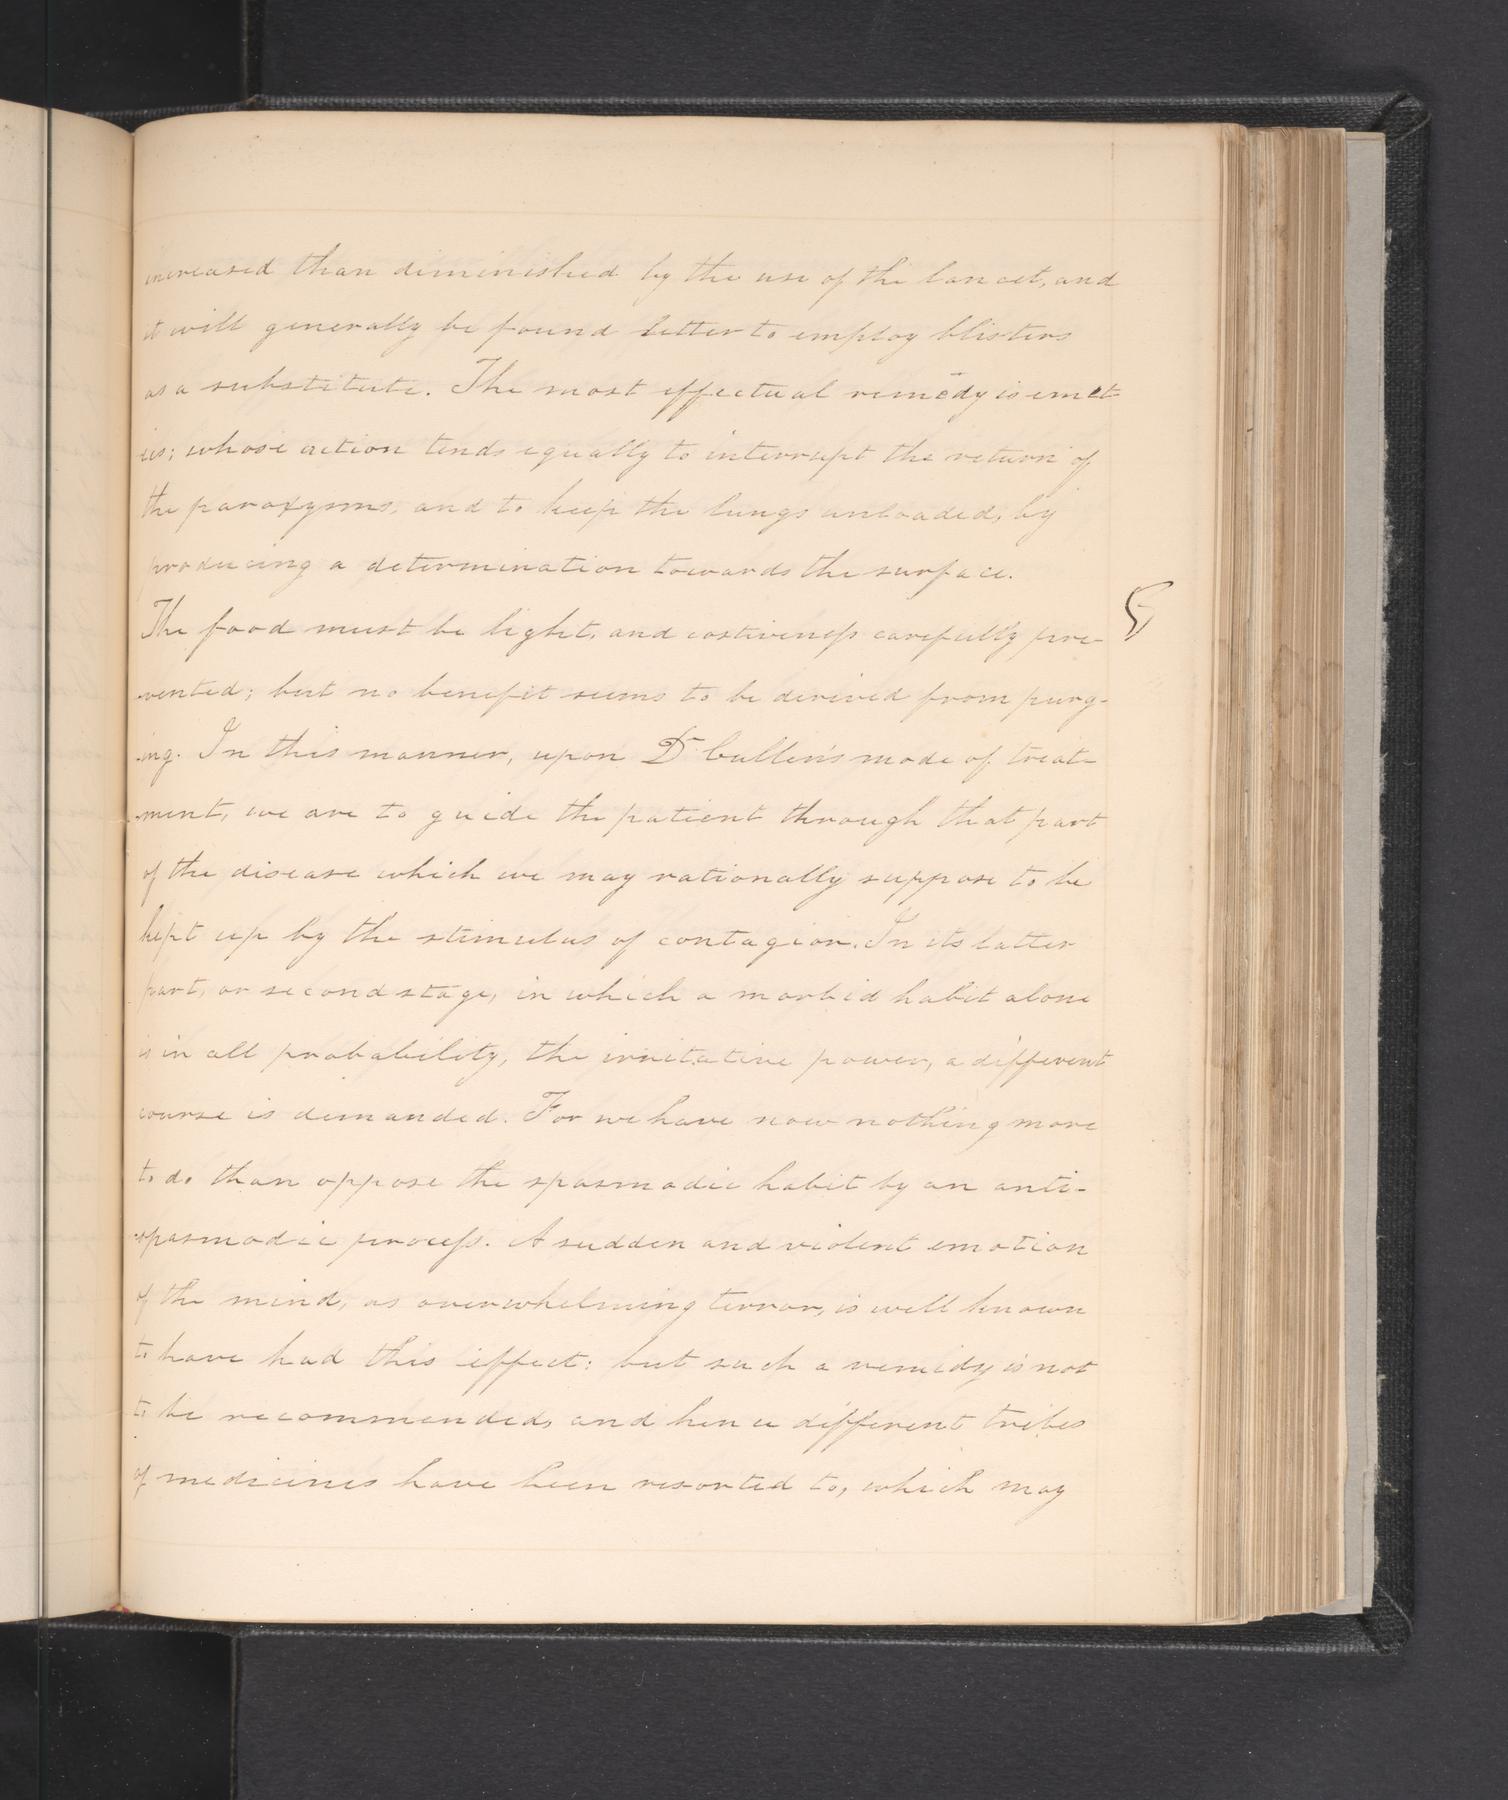 increased than diminished by the use of the lancet, and
it will generally be found better to employ blisters
as a substitute. The most effectual remedy is emet-
ics; whose action tends equally to interrupt the return of
the paroxysms, and to keep the lungs unloaded, by
producing a determination towards the surface.
The food must be light, and costiveness carefully pre-
vented; but no benefit seems to be derived from purg-
ing. In this manner, upon Dr Cullen's mode of treat-
ment, we are to guide the patient through that part
of the disease which we may rationally suppose to be
kept up by the stimulus of contagion. In its latter
part, or second stage, in which a morbid habit alone
is in all probability, the irritative power, a different
course is demanded. For we have now nothing more
to do than oppose the spasmodic habit by an anti-
spasmodic process. A sudden and violent emotion
of the mind, as overwhelming terror, is well known
to have had this effect: but such a remidy is not
to be recommended, and hence different tribes
of medicines have been resorted to, which may